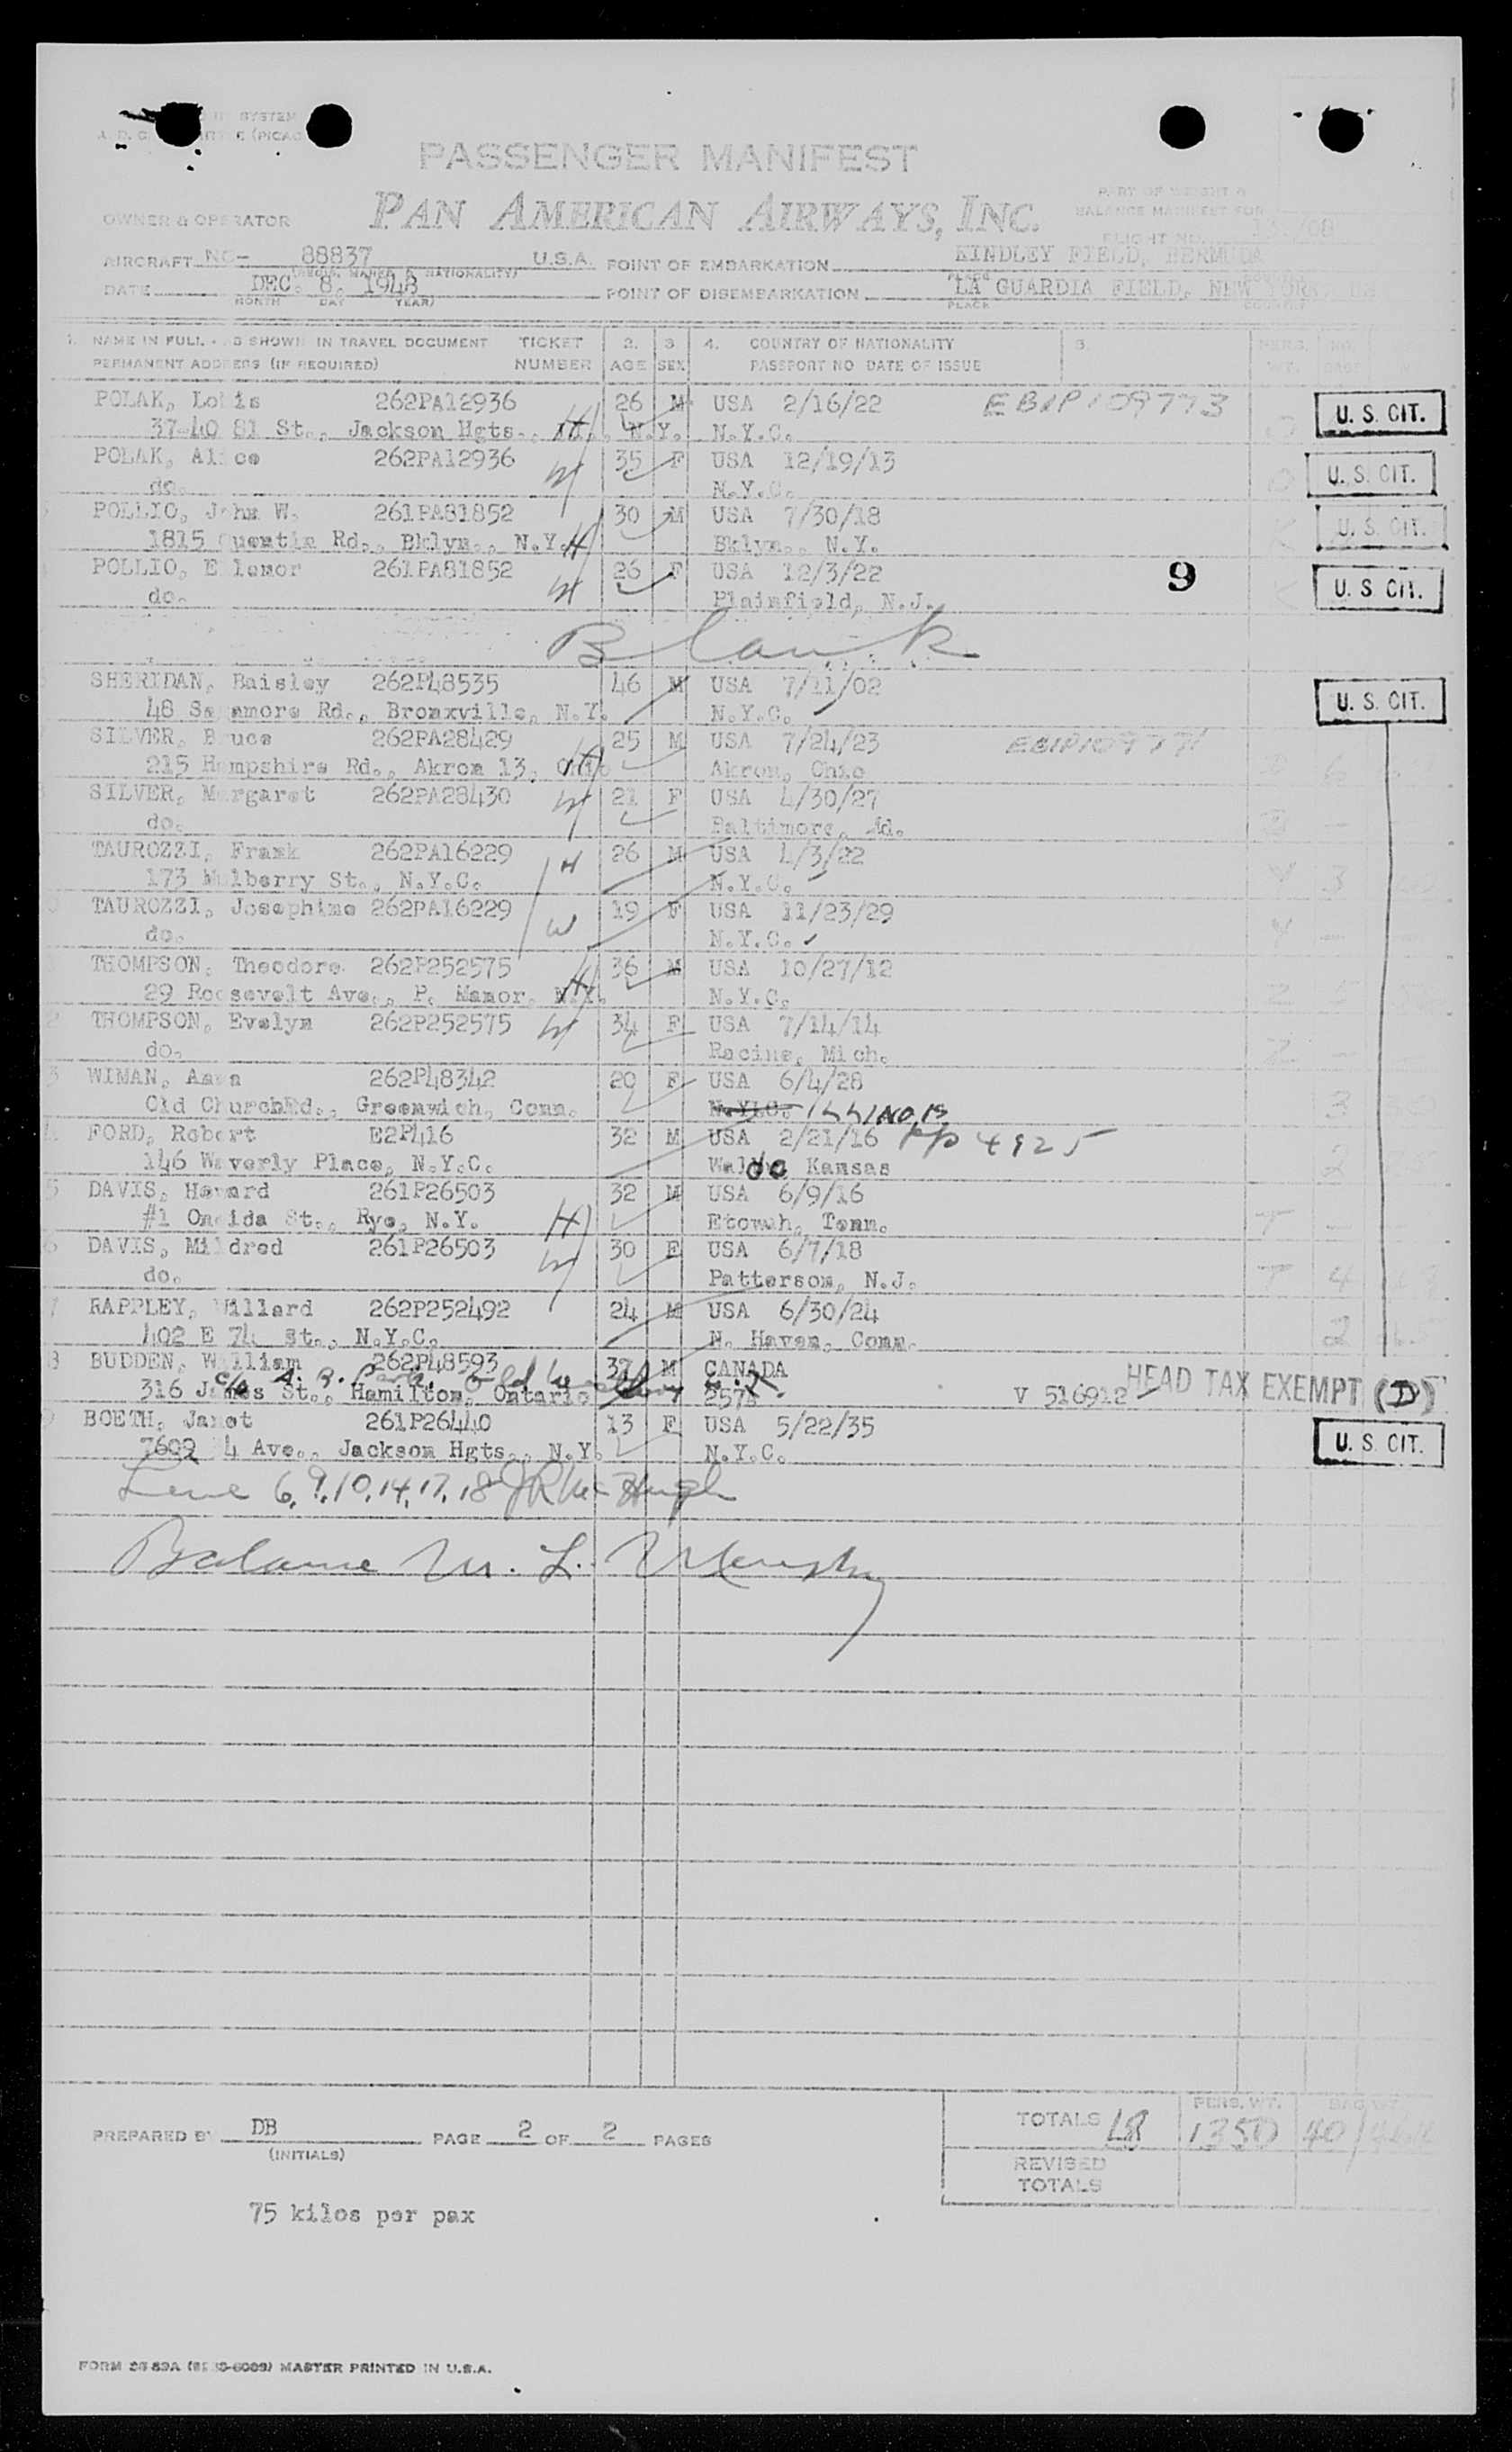 SYSTEM
PASSENGER MANIFEST
PAN AMERICAN AIRWAYS, INC.
PART OF WEIGHT &
BALANCE MANIFEST FOR
OWNER & OPERATOR
FLIGHT NO.
AIRCRAFT NO- 88837 U.S.A. POINT OF EMBARKATION KINDLEY FIELD, BERMUDA
DATE DEC. 8, 1948 POINT OF DISEMBARKATION LA GUARDIA FIELD, NEW YORK
MONTH DAY YEAR) PLACE
1. NAME IN FULL - AS SHOWN IN TRAVEL DOCUMENT TICKET 2. 3 4. COUNTRY OF NATIONALITY 5.
PERMANENT ADDRESS (IF REQUIRED) NUMBER AGE SEX PASSPORT NO DATE OF ISSUE
POLAK, Louis 262PA12936 26 M USA 2/16/22 EBIP109773 U. S. CIT.
37-40 81 St., Jackson Hgts., N.Y. N.Y.C.
POLAK, Alice 262PA12936 W 35 F USA 12/19/13 U. S. CIT.
do. N.Y.C.
POLLIO, John W. 261PA81852 30 M USA 7/30/18 U. S. CIT.
1815 Quentin Rd., Bklyn., N.Y. H Bklyn., N.Y.
POLLIO, Elenor 261PA81852 W 26 F USA 12/3/22 9 U. S. CIT.
do. Plainfield, N.J.
Blank
SHERIDAN, Baisley 262P48535 46 M USA 7/11/02 U. S. CIT.
48 Sagamore Rd., Bronxville, N.Y. N.Y.C.
SILVER, Bruce 262PA28429 H 25 M USA 7/24/23
215 Hampshire Rd., Akron 13, Ohio Akron, Ohio
SILVER, Margaret 262PA28430 W 21 F USA 4/30/27
do. Baltimore, Md.
TAUROZZI, Frank 262PA16229 H 26 M USA 4/3/22
173 Mulberry St., N.Y.C. N.Y.C.
TAUROZZI, Josephine 262PA16229 W 19 F USA 11/23/29
do. N.Y.C.
THOMPSON, Theodore 262P252575 H 36 M USA 10/27/12
29 Roosevelt Ave., P. Manor, N.Y. N.Y.C.
THOMPSON, Evelyn 262P252575 W 34 F USA 7/14/14
do. Racine, Mich.
WIMAN, Anna 262P48342 20 F USA 6/4/28
Old ChurchRd., Greenwich, Conn. N.Y.C. ILLINOIS
FORD, Robert E2P416 32 M USA 2/21/16 PP 4925
146 Waverly Place, N.Y.C. Waldo, Kansas
DAVIS, Howard 261P26503 32 M USA 6/9/16
#1 Oneida St., Rye, N.Y. H Etowah, Tenn.
DAVIS, Mildred 261P26503 W 30 F USA 6/7/18
do. Patterson, N.J.
RAPPLEY, Willard 262P252492 24 M USA 6/30/24
402 E 74 St., N.Y.C. N. Haven, Conn.
BUDDEN, William 262P48593 37 M CANADA
316 James St., Hamilton, Ontario V 516912 HEAD TAX EXEMPT (D)
BOETH, Janet 261P26440 13 F USA 5/22/35 U. S. CIT.
7609 34 Ave., Jackson Hgts., N.Y. N.Y.C.
Line 6, 9, 10, 14, 17, 18
Balance M. L.
TOTALS 18 PERS. WT. 1350
PREPARED BY DB PAGE 2 OF 2 PAGES
(INITIALS)
REVISED
TOTALS
75 kilos per pax
MASTER PRINTED IN U.S.A.